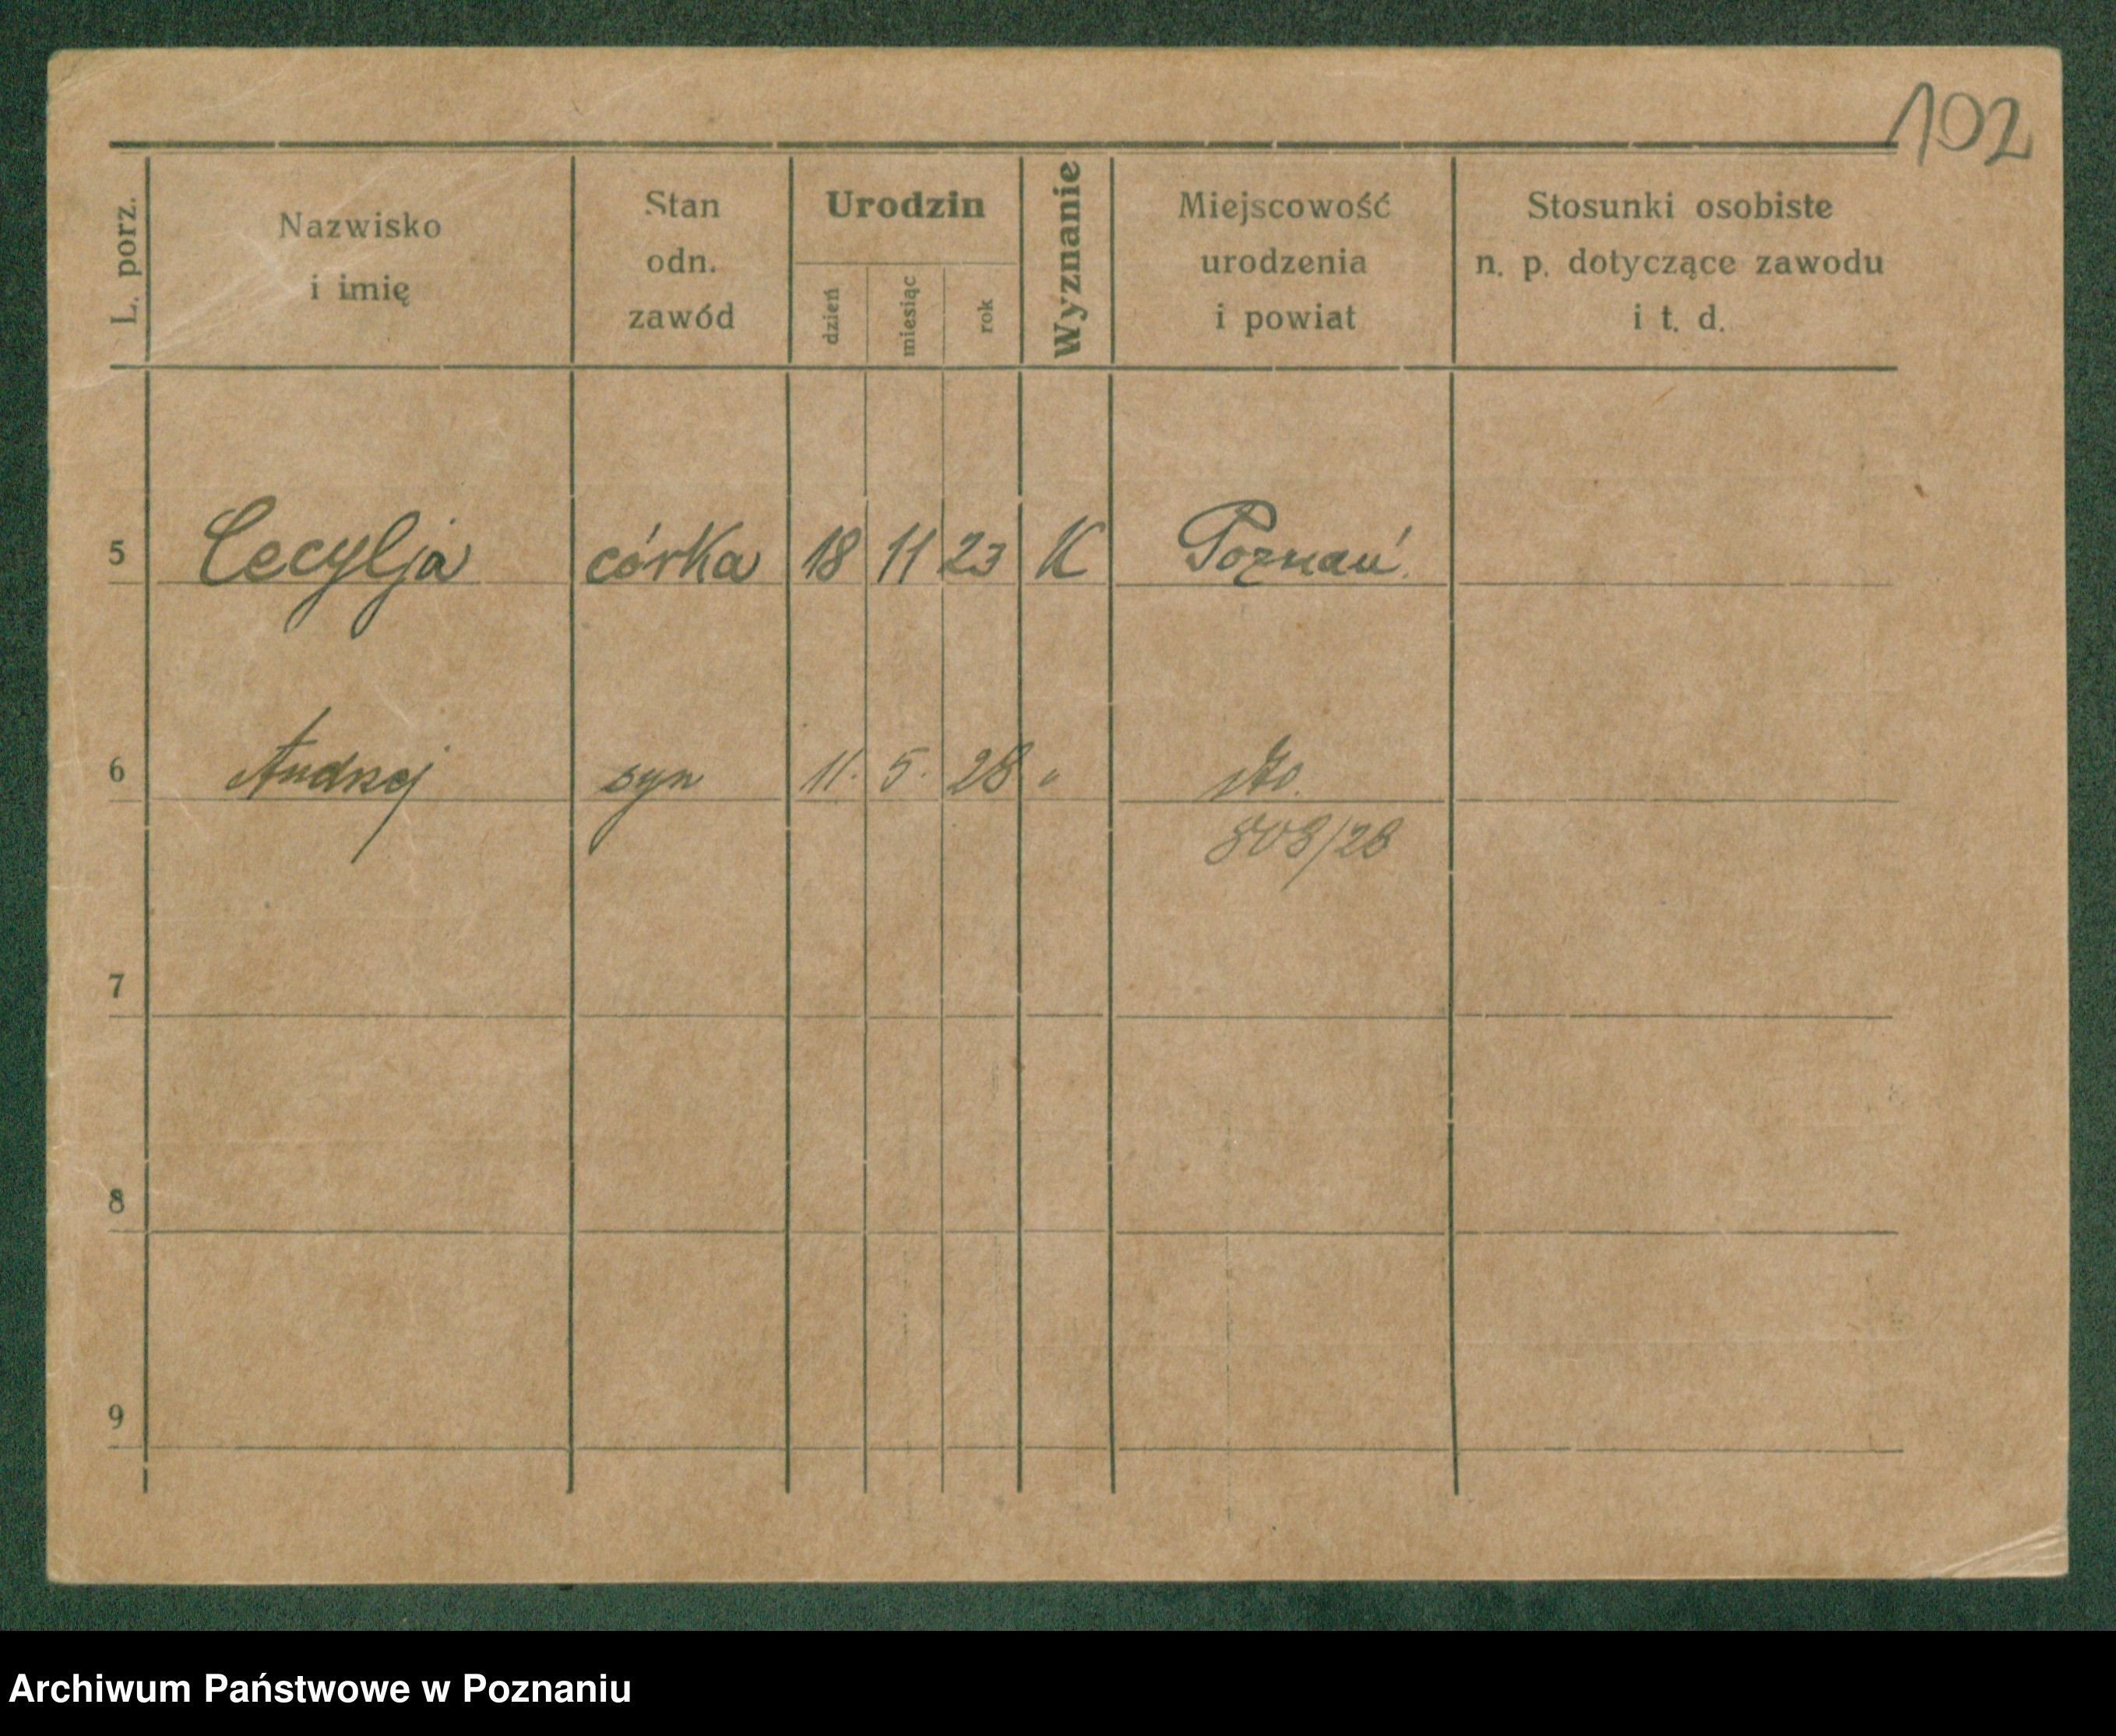 102
L. porz.
Nazwisko
i imię
Stan
odn.
zawód
Urodzin
dzień
miesiąc
rok
Wyznanie
Miejscowość
urodzenia
i powiat
Stosunki osobiste
n. p. dotyczące zawodu
i t. d.
5 Cecylja córka 18 11 23 K Poznań.
6 Andrzej syn 11. 5. 28 " dto.
808/28
7
8
9
Archiwum Państwowe w Poznaniu